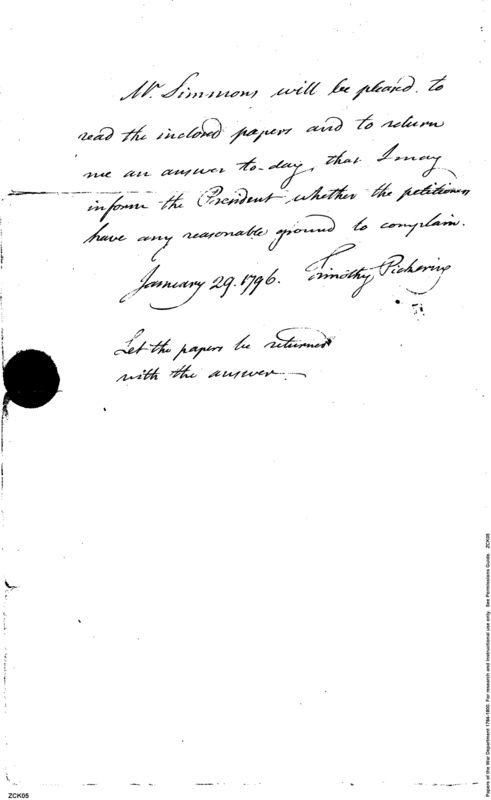 Mr. Simmons will be pleased to
read the inclosed papers and to return
me an answer to-day, that I may
inform the President whether the petitioners
have any reasonable ground to complain.
January 29. 1796. Timothy Pickering
Let the papers be returned
with the answer.
ZCK05
Papers of the War Department 1784-1800. For research and instructional use only. See Permissions Guide. ZCK05